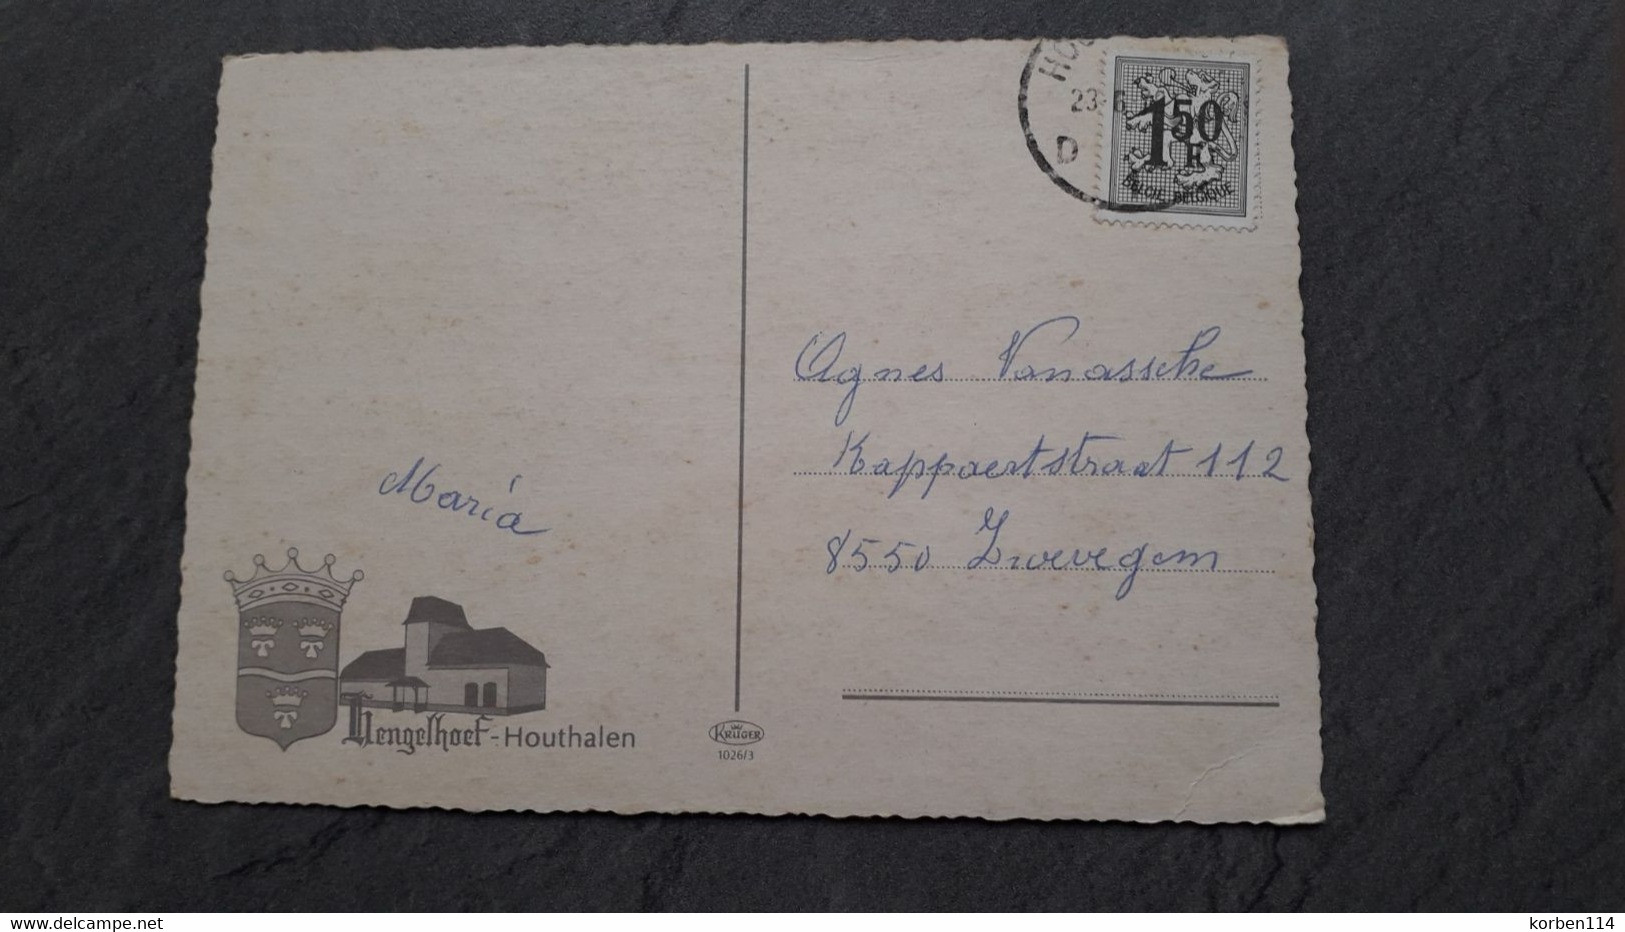 23 6
D
1 50 F
BELGIE BELGIQUE
Agnes Vanassche
Kappaertstraat 112
8550 Zwevegem
María
Hengelhoef - Houthalen
KRÜGER
1026/3
delcampe.net
korben114